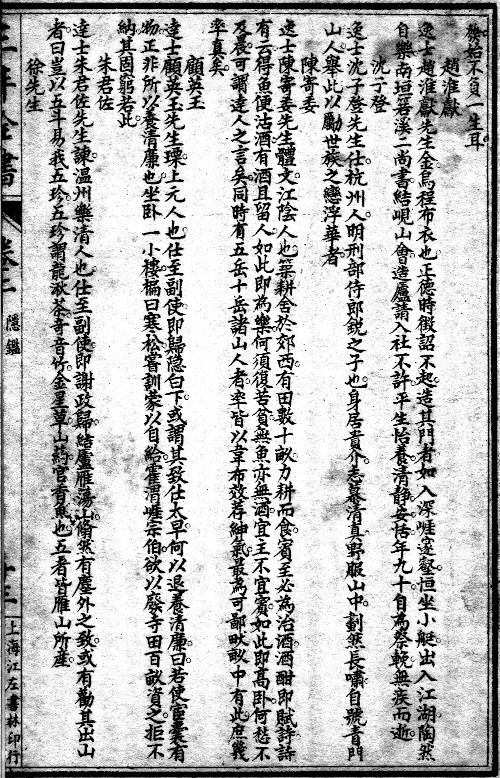 機始不負一生耳
趙淮獻
逸士趙淮獻先生金烏程布衣也正德時徵詔不起造其門者如入深崕邃壑恒坐小艇出入江湖陶然
自樂南垣箬溪二尚書結峴山會造廬請入社不許平生怡養清靜安恬年九十自為祭輓無疾而逝
沈子登
逸士沈子登先生仕杭州人明刑部侍郎銳之子也身居貴介志慕清真野服山中劃然長嘯自號青門
山人舉此以勵世族之戀浮華者
陳寄委
逸士陳寄委先生體文江陰人也築耕舍於郊西有田數十畝力耕而食賓至必為治酒酒酣即賦詩詩
有云得魚便沽酒有酒且留人如此即為樂何須復苦貧無魚亦無酒宜主不宜賓如此即高臥何愁不
及晨可謂達人之言矣同時有五岳十岳諸山人者率皆以韋布效荐紳氣最為可鄙畎畝中有此庶幾
率真矣
顧英玉
達士顧英玉先生瑮上元人也仕至副使即歸隱白下或謂其致仕太早何以退養清廉曰若使宦橐有
物正非所以養清廉也坐臥一小樓榜曰寒松嘗訓蒙以自給霍渭崕宗伯欲以廢寺田百畝資之拒不
納其固窮若此
朱君佐
達士朱君佐先生諫温州樂清人也仕至副使即謝政歸結廬雁蕩山翛然有塵外之致或有勸其出山
者曰豈以五斗易我五珍五珍謂龍湫茶奇音竹金星草山葯官香魚也五者皆雁山所產
徐先生
卷二
隱鑑
十三
上海江左書林印行